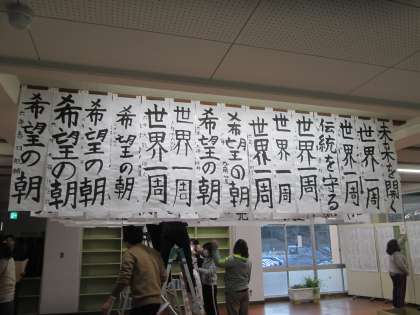 未来を開く
世界一周
世界一周
伝統を守る
世界一周
世界一周
世界一周
希望の朝
希望の朝
世界一周
世界一周
希望の朝
希望の朝
希望の朝
希望の朝